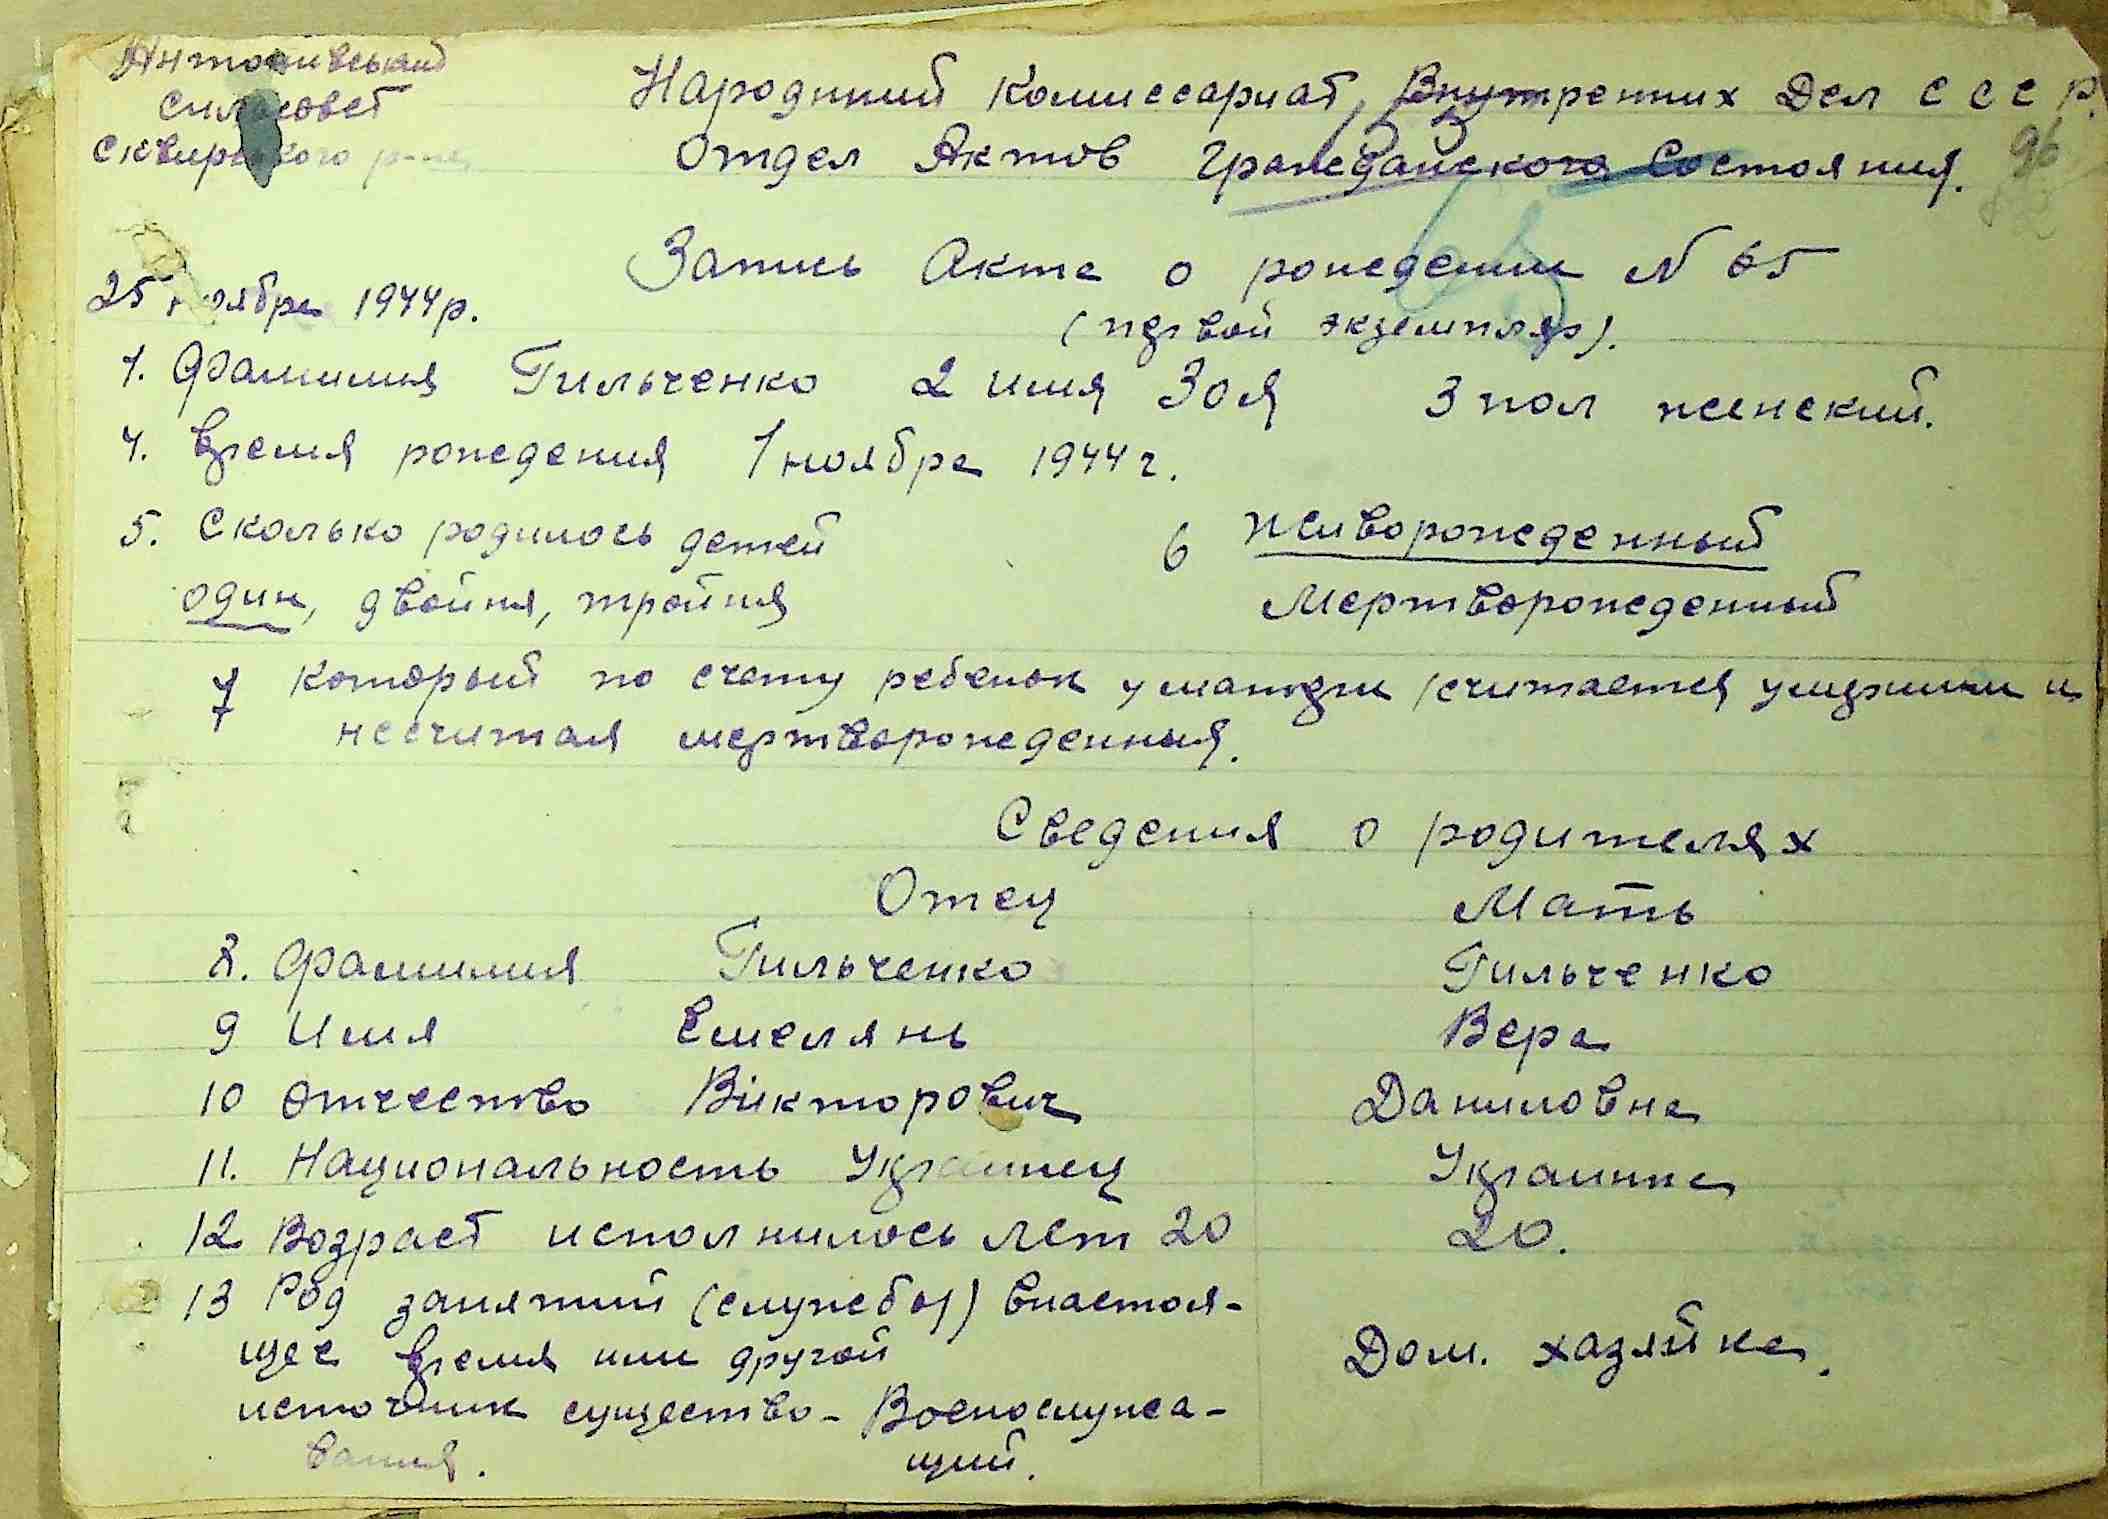 Антонивський
сильсовет
Сквирского р-на
Народний Комиссариат Внутренних Дел С С С Р.
Отдел Актов Гражданского Состояния.
96
Запись Акта о рождении N 65
25 ноября 1944р.
(первой экземпляр).
1. Фамилия Гильченко 2 имя Зоя 3 пол женский.
4. Время рождения 1 ноября 1944 г.
5. Сколько родилось детей
один, двойня, тройня
6 живорожденный
Мертворожденный
7 который по счету ребенок у матери (считается умершими и
несчитая мертворожденных.
Сведения о родителях
Отец Мать
8. Фамилия Гильченко Гильченко
9 Имя Емелянь Вера
10 Отчество Вікторович Даниловна
11. Национальность Украинец Украинка
12 Возраст исполнилось лет 20 20.
13 Род занятий (службы) внастоя-
щее время или другой Дом. хазяйка.
источник существо- Военослужа-
вания. щий.